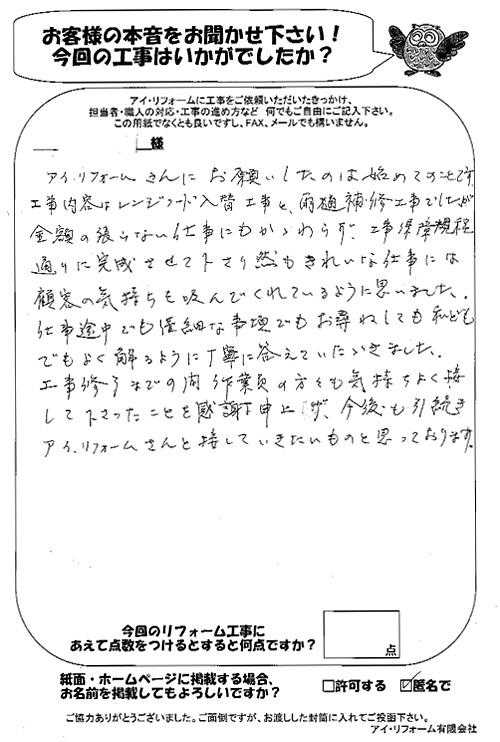 お客様の本音をお聞かせ下さい!
今回の工事はいかがでしたか?
アイ・リフォームに工事をご依頼いただいたきっかけ、
担当者・職人の対応・工事の進め方など 何でもご自由にご記入下さい。
この用紙でなくとも良いですし、FAX、メールでも構いません。
様
アイ.リフォームさんに お願いしたのは始めてのことです。
工事内容はレンジフード入替工事と、雨樋補修工事でしたが
金額の張らない仕事にもかゝわらず、工事準障規程
通りに完成させて下さり然もきれいな仕事には
顧客の気持ちを汲んでくれているように思いました。
仕事途中でも細な事項でもお尋ねしても私ども
でもよく解るように丁寧に答えていただきました。
工事修了までの間 作業員の方々も気持ちよく接
して下さったことを感謝申上げ、今後も引続き
アイ.リフォームさんと接していきたいものと思っております。
今回のリフォーム工事に
あえて点数をつけるとすると何点ですか?
点
紙面・ホームページに掲載する場合、
お名前を掲載してもよろしいですか?
□許可する ☑匿名で
ご協力ありがとうございました。ご面倒ですが、お渡しした封筒に入れてご投函下さい。
アイ・リフォーム有限会社